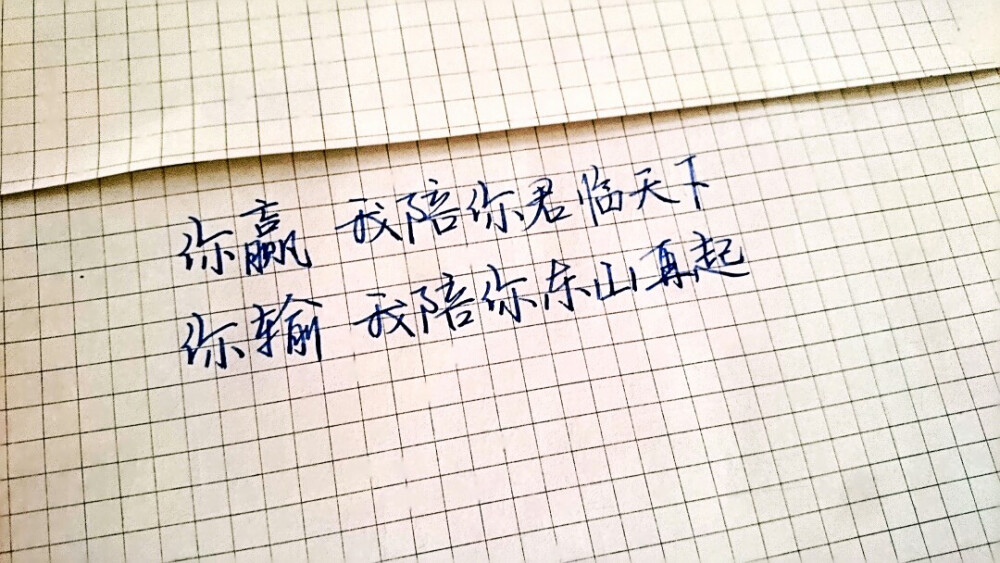 你赢 我陪你君临天下
你输 我陪你东山再起